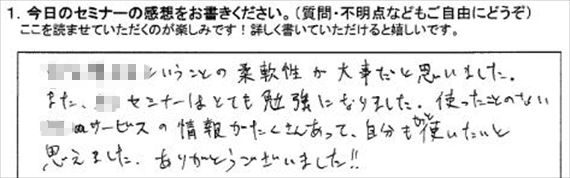 1. 今日のセミナーの感想をお書きください。（質問・不明点などもご自由にどうぞ）
ここを読ませていただくのが楽しみです！詳しく書いていただけると嬉しいです。
いうことの柔軟性が大事だと思いました。
また、セミナーはとても勉強になりました。使ったことのない
サービスの情報がたくさんあって、自分も使いたいと
思えました。ありがとうございました!!